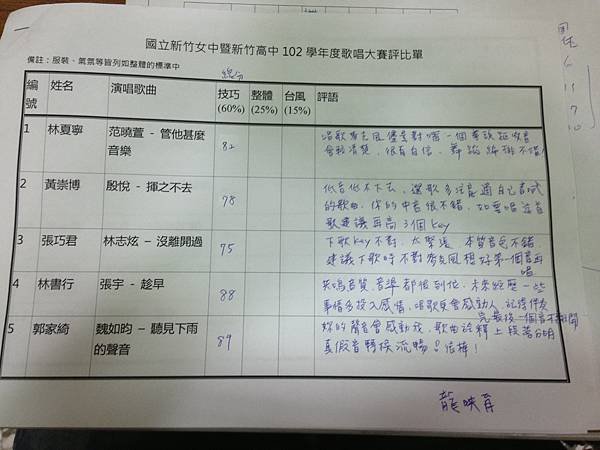 國立新竹女中暨新竹高中 102 學年度歌唱大賽評比單
備註：服裝、氣氛等皆列如整體的標準中
總分
編號 姓名 演唱歌曲 技巧(60%) 整體(25%) 台風(15%) 評語
1 林夏寧 范曉萱 - 管他甚麼音樂 82
唱歌麥克風儘量對嘴
會較清楚，很有自信，舞蹈編排不錯
2 黃崇博 殷悅 - 揮之不去 78
低音低不下去，選歌多注意適自己
的歌曲，你的中音很不錯，如要唱這首
歌建議再高3個key
3 張巧君 林志炫 – 沒離開過 75
下歌key不對，太緊張，本質音色不錯
建議下歌時不對麥克風想好第一個音再
唱
4 林書行 張宇 - 趁早 88
共鳴音質、音準都很到位，未來經歷一些
事情多投入感情，唱歌更會感動人，記得
完最後一個音不離開
5 郭家綺 魏如昀 – 聽見下雨的聲音 89
妳的聲音會感動我，歌曲詮釋上段落分明
真假音轉換流暢！很棒！
6
11
7
10